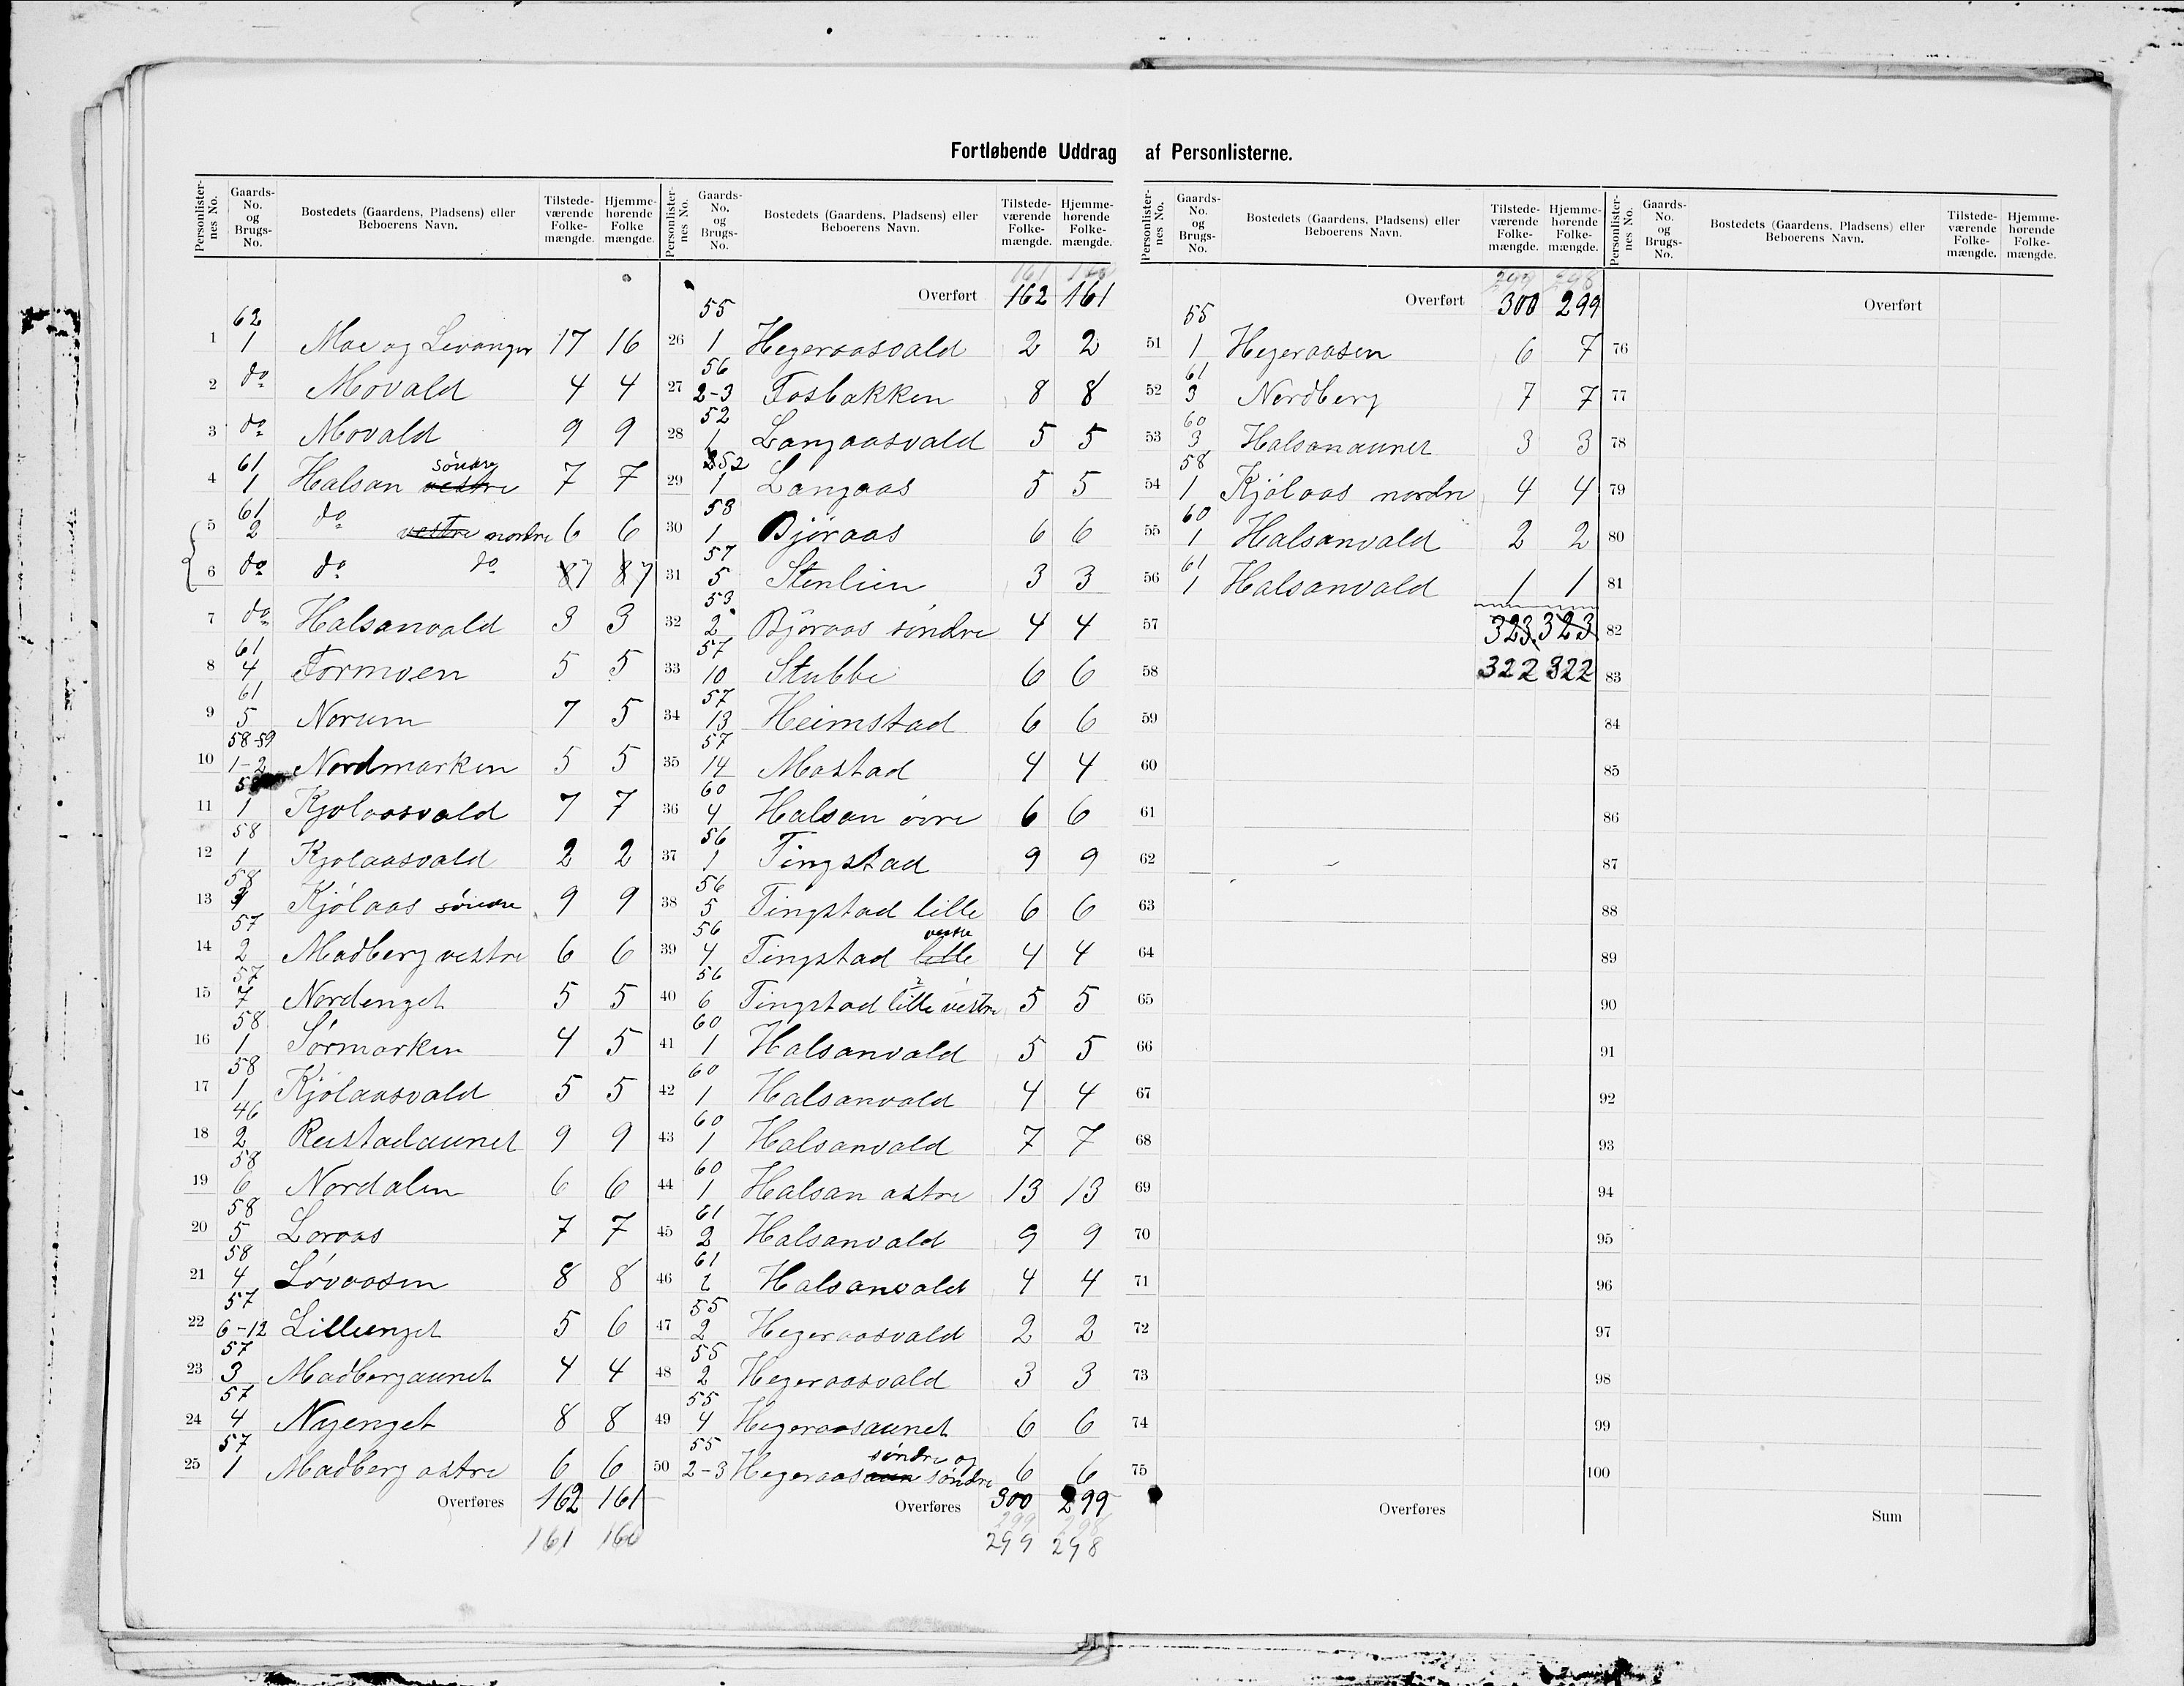 Fortløbende Uddrag af Personlisterne.
Personlisternes No. | Gaards-No. og Brugs-No. | Bostedets (Gaardens, Pladsens) eller Beboerens Navn. | Tilstedeværende Folkemængde. | Hjemmehørende Folkemængde.
1 | 62 1 | Moe og Levanger | 17 | 16
2 | do | Movald | 4 | 4
3 | do | Movald | 9 | 9
4 | 61 1 | Halsan vestre søndre | 7 | 7
5 | 61 2 | do vestre nordre | 6 | 6
6 | do | do do | 8 7 | 8 7
7 | do | Halsanvald | 3 | 3
8 | 61 4 | Formoen | 5 | 5
9 | 61 5 | Norum | 7 | 5
10 | 58-59 1-2 | Nordmarken | 5 | 5
11 | 58 1 | Kjølaasvald | 7 | 7
12 | 58 1 | Kjølaasvald | 2 | 2
13 | 58 | Kjølaas søndre | 9 | 9
14 | 57 2 | Madberg vestre | 6 | 6
15 | 57 7 | Nordenget | 5 | 5
16 | 58 1 | Sørmarken | 4 | 5
17 | 58 1 | Kjølaasvald | 5 | 5
18 | 46 2 | Reistadaunet | 9 | 9
19 | 58 6 | Nordalen | 6 | 6
20 | 58 5 | Loraas | 7 | 7
21 | 58 4 | Løvaasen | 8 | 8
22 | 57 6-12 | Lilleenget | 5 | 6
23 | 57 3 | Madbergaunet | 4 | 4
24 | 57 4 | Nyenget | 8 | 8
25 | 57 1 | Madberg østre | 6 | 6
Overføres 162 161
161 160
Personlisternes No. | Gaards-No. og Brugs-No. | Bostedets (Gaardens, Pladsens) eller Beboerens Navn. | Tilstedeværende Folkemængde. | Hjemmehørende Folkemængde.
161 160
Overført 162 161
26 | 55 1 | Hegeraasvald | 2 | 2
27 | 56 2-3 | Fosbakken | 8 | 8
28 | 52 1 | Langaasvald | 5 | 5
29 | 52 1 | Langaas | 5 | 5
30 | 53 1 | Bjøraas | 6 | 6
31 | 57 5 | Stenlien | 3 | 3
32 | 53 2 | Bjøraas søndre | 4 | 4
33 | 57 10 | Stubbe | 6 | 6
34 | 57 13 | Heimstad | 6 | 6
35 | 57 14 | Mostad | 4 | 4
36 | 60 4 | Halsan øvre | 6 | 6
37 | 56 1 | Tingstad | 9 | 9
38 | 56 5 | Tingstad lille | 6 | 6
39 | 56 4 | Tingstad lille vestre | 4 | 4
40 | 56 6 | Tingstad lille vestre | 5 | 5
41 | 60 1 | Halsanvald | 5 | 5
42 | 60 1 | Halsanvald | 4 | 4
43 | 60 1 | Halsanvald | 7 | 7
44 | 60 1 | Halsan østre | 13 | 13
45 | 61 2 | Halsanvald | 9 | 9
46 | 61 | Halsanvald | 4 | 4
47 | 55 2 | Hegeraasvald | 2 | 2
48 | 55 2 | Hegeraasvald | 3 | 3
49 | 55 4 | Hegeraasaunet | 6 | 6
50 | 55 2-3 | Hegeraas søndre og søndre | 6 | 6
Overføres 300 299
299 298
299 298
Personlisternes No. | Gaards-No. og Brugs-No. | Bostedets (Gaardens, Pladsens) eller Beboerens Navn. | Tilstedeværende Folkemængde. | Hjemmehørende Folkemængde.
299 298
Overført 300 299
51 | 55 1 | Hegeraasen | 6 | 7
52 | 61 3 | Nordberg | 7 | 7
53 | 60 3 | Halsanaunet | 3 | 3
54 | 58 1 | Kjølaas nordre | 4 | 4
55 | 60 1 | Halsanvald | 2 | 2
56 | 61 1 | Halsanvald | 1 | 1
57 | 323 | 323
58 | 322 | 322
59
60
61
62
63
64
65
66
67
68
69
70
71
72
73
74
75
Overføres
Personlisternes No. | Gaards-No. og Brugs-No. | Bostedets (Gaardens, Pladsens) eller Beboerens Navn. | Tilstedeværende Folkemængde. | Hjemmehørende Folkemængde.
Overført
76
77
78
79
80
81
82
83
84
85
86
87
88
89
90
91
92
93
94
95
96
97
98
99
100
Sum